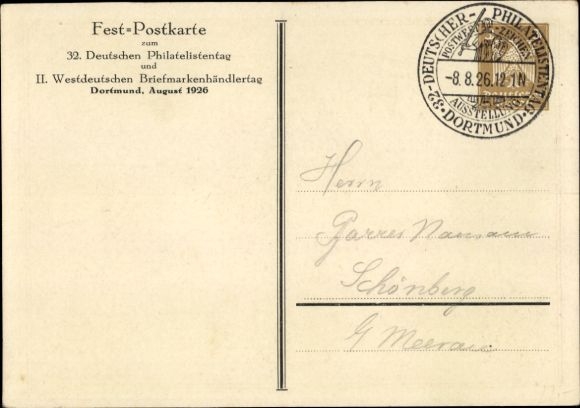 Fest=Postkarte
zum
32. Deutschen Philatelistentag
und
II. Westdeutschen Briefmarkenhändlertag
Dortmund, August 1926
32. DEUTSCHER- PHILATELISTENTAG
POSTWERTZEICHEN
-8.8.26.12-1N
AUSSTELLUNG
DORTMUND
Herrn
Schönberg